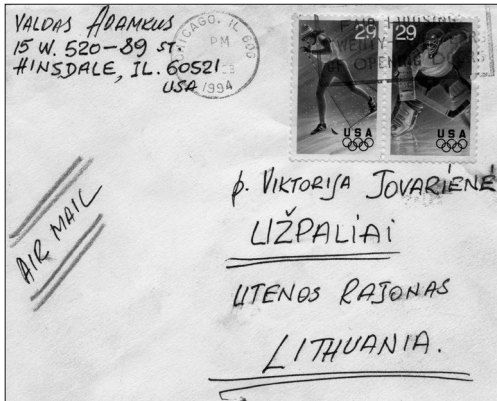 VALDAS ADAMKUS
15 W. 520-89 ST.
HINSDALE, IL. 60521
USA
CHICAGO, IL 606
PM
1994
29
USA
29
USA
OPENING
AIR MAIL
p. VIKTORIJA JOVARIENĖ
UŽPALIAI
UTENOS RAJONAS
LITHUANIA.